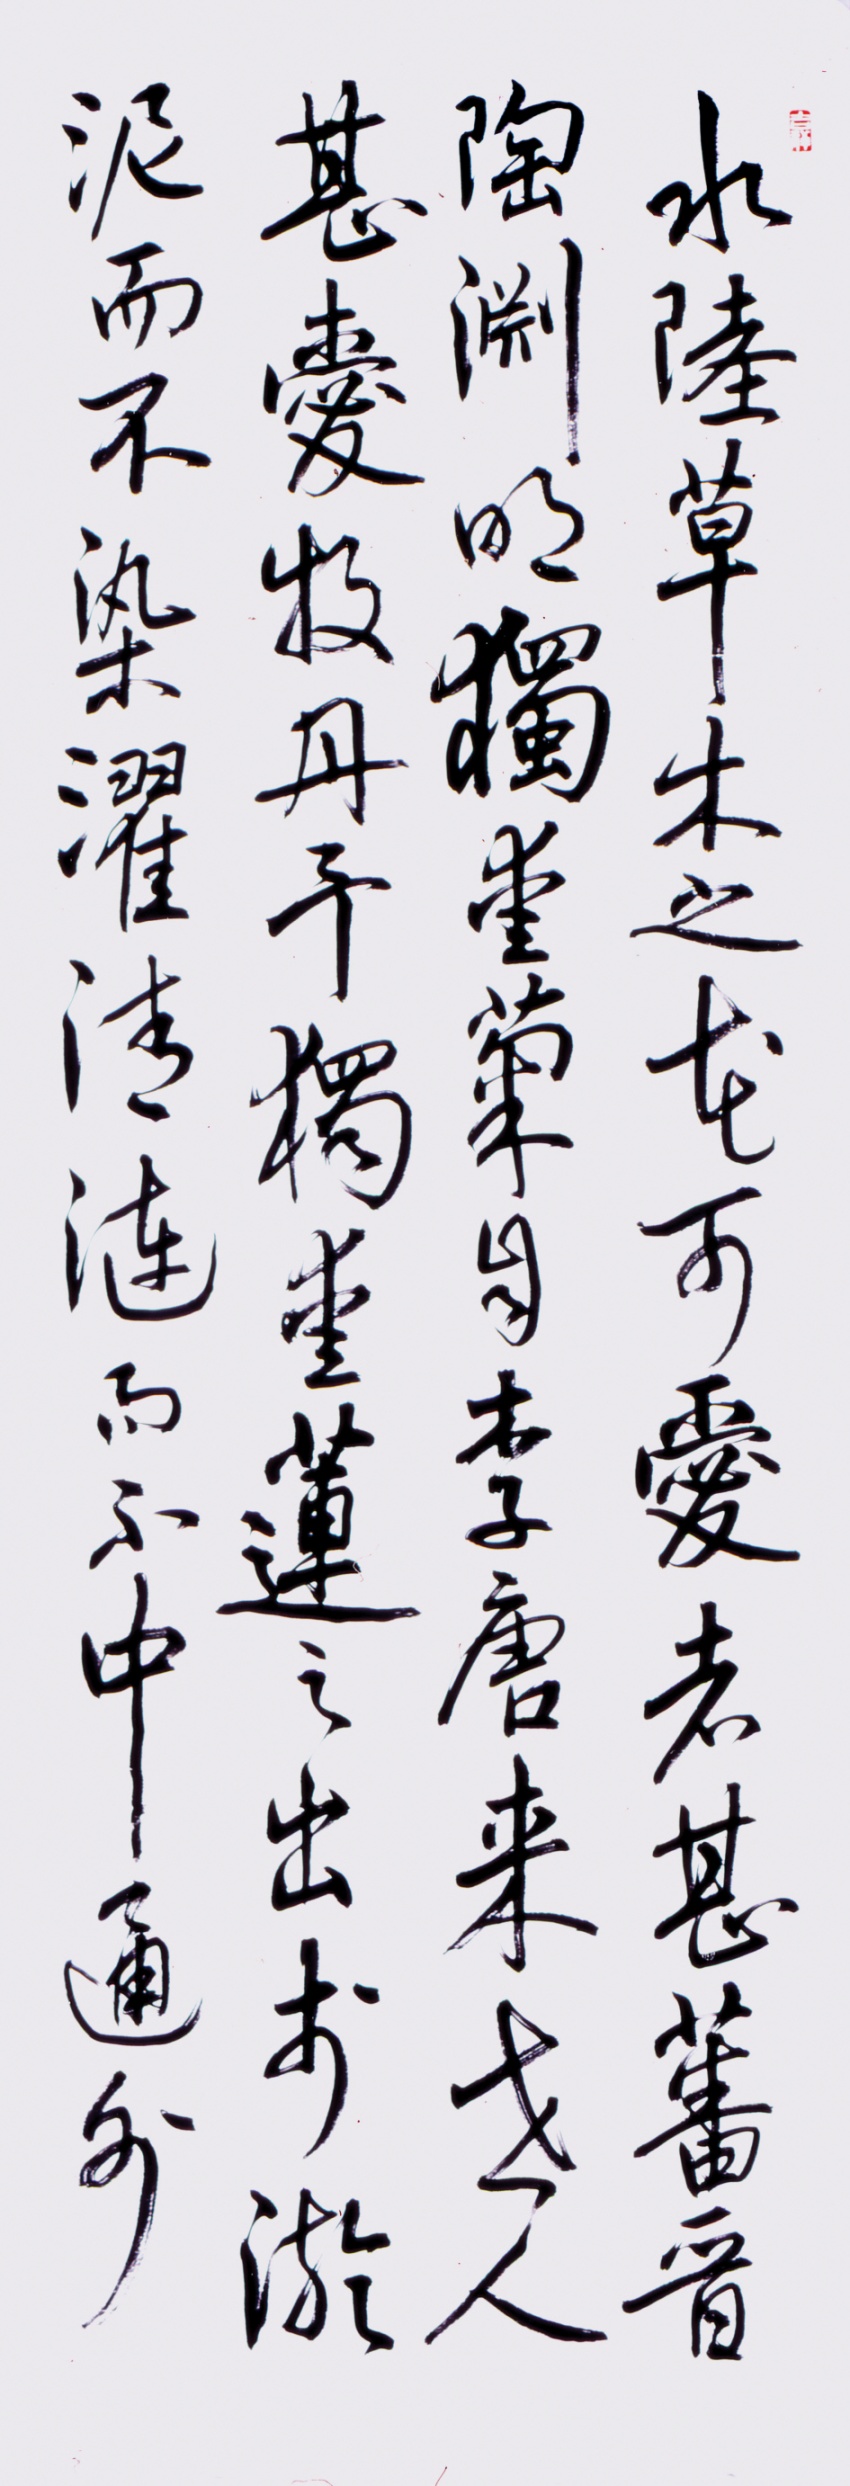 水陸草木之花可愛者甚蕃晋
陶淵明獨愛菊自李唐来世人
甚愛牧丹予獨愛蓮之出於淤
泥而不染濯清漣而不中通外